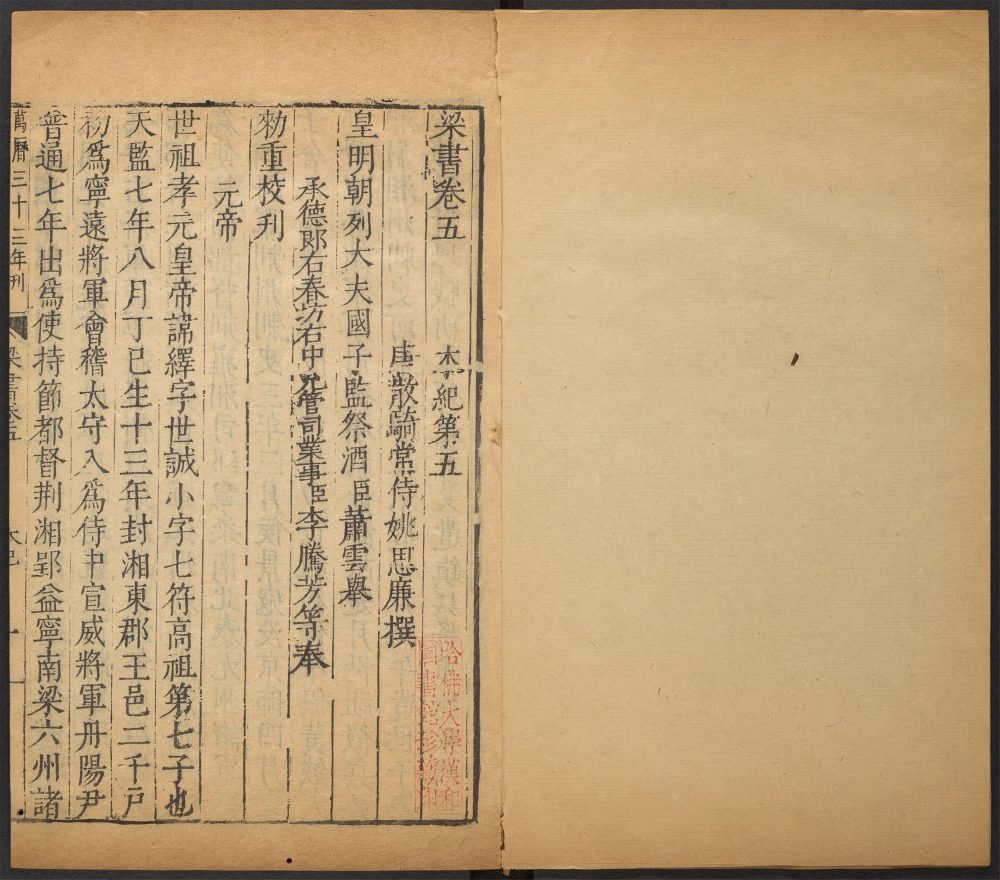 梁書卷五　本紀第五
唐散騎常侍姚思廉撰
皇明朝列大夫國子監祭酒臣蕭雲舉
承德郎右春坊右中允管司業事臣李騰芳等奉
勅重校刋
元帝
世祖孝元皇帝諱繹字世誠小字七符高祖第七子也
天監七年八月丁巳生十三年封湘東郡王邑二千戸
初爲寧遠將軍會稽太守入爲侍中宣威將軍丹陽尹
普通七年出爲使持節都督荆湘郢益寧南梁六州諸
萬曆三十三年刋
梁書卷五
本紀
一
哈佛大學漢和
圖書館珍藏印